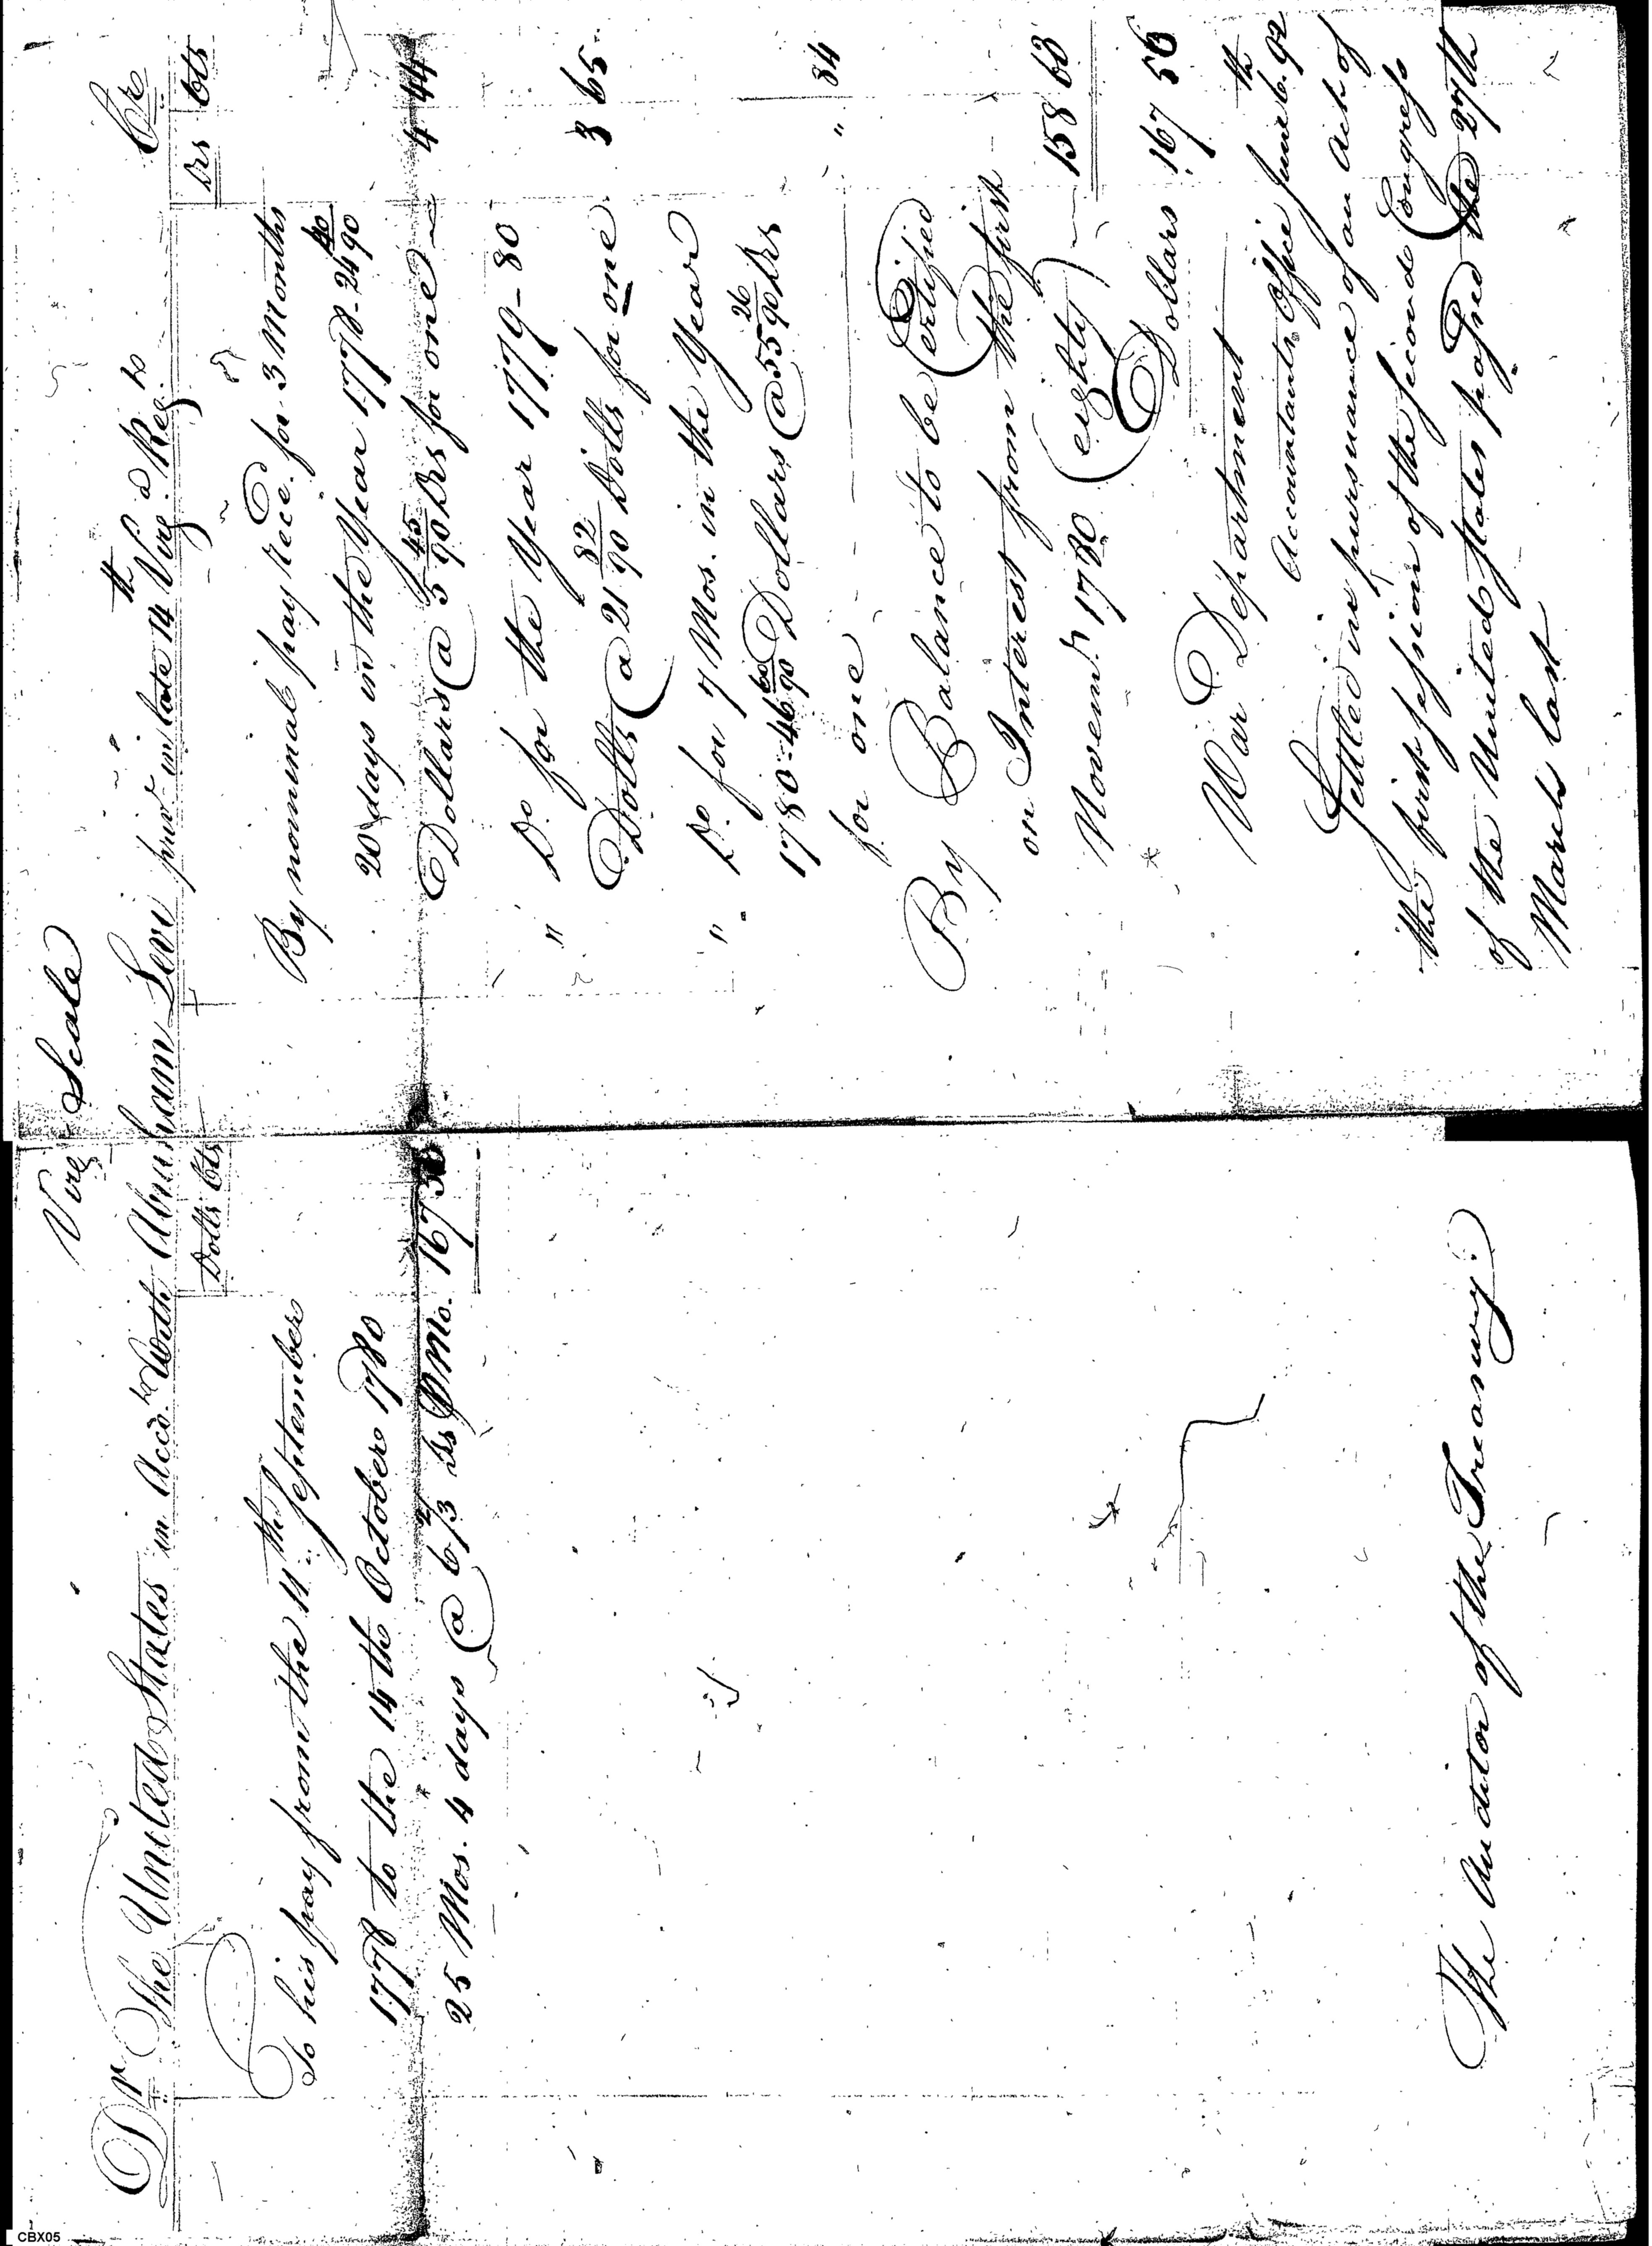 Virg.a Scale
Dr The United States in Acco.t With Abraham Levi priv.t in late 14th Virg.a Reg.t Cr
Dolls Cts
To his pay from the 11th September
1778 to the 14th October 1780
25 Mos. 4 days @ 6 2/3 Drs P Mo. 167 56
The Auditor of the Treasury.
Drs Cts
By nominal pay Rece.d for 3 Months
20 days in the Year 1778 - 24 40/90
Dollars @ 5 45/90 Drs for one 4 44
" D.o for the Year 1779 - 80
Dolls @ 21 82/90 Dolls for one 3 65
" D.o for 7 Mos. in the Year
1780 - 46 60/90 Dollars @ 55 26/90 Drs
for one " 84
By Balance to be Certified
on Interest from the first
Novem.r 1780 (eighty) 158 63
Dollars 167 56
War Department
Accountants Office June 6th 92
Settled in pursuance of an Act of
the first session of the second Congress
of the United States passed the 27th
March last
CBX05